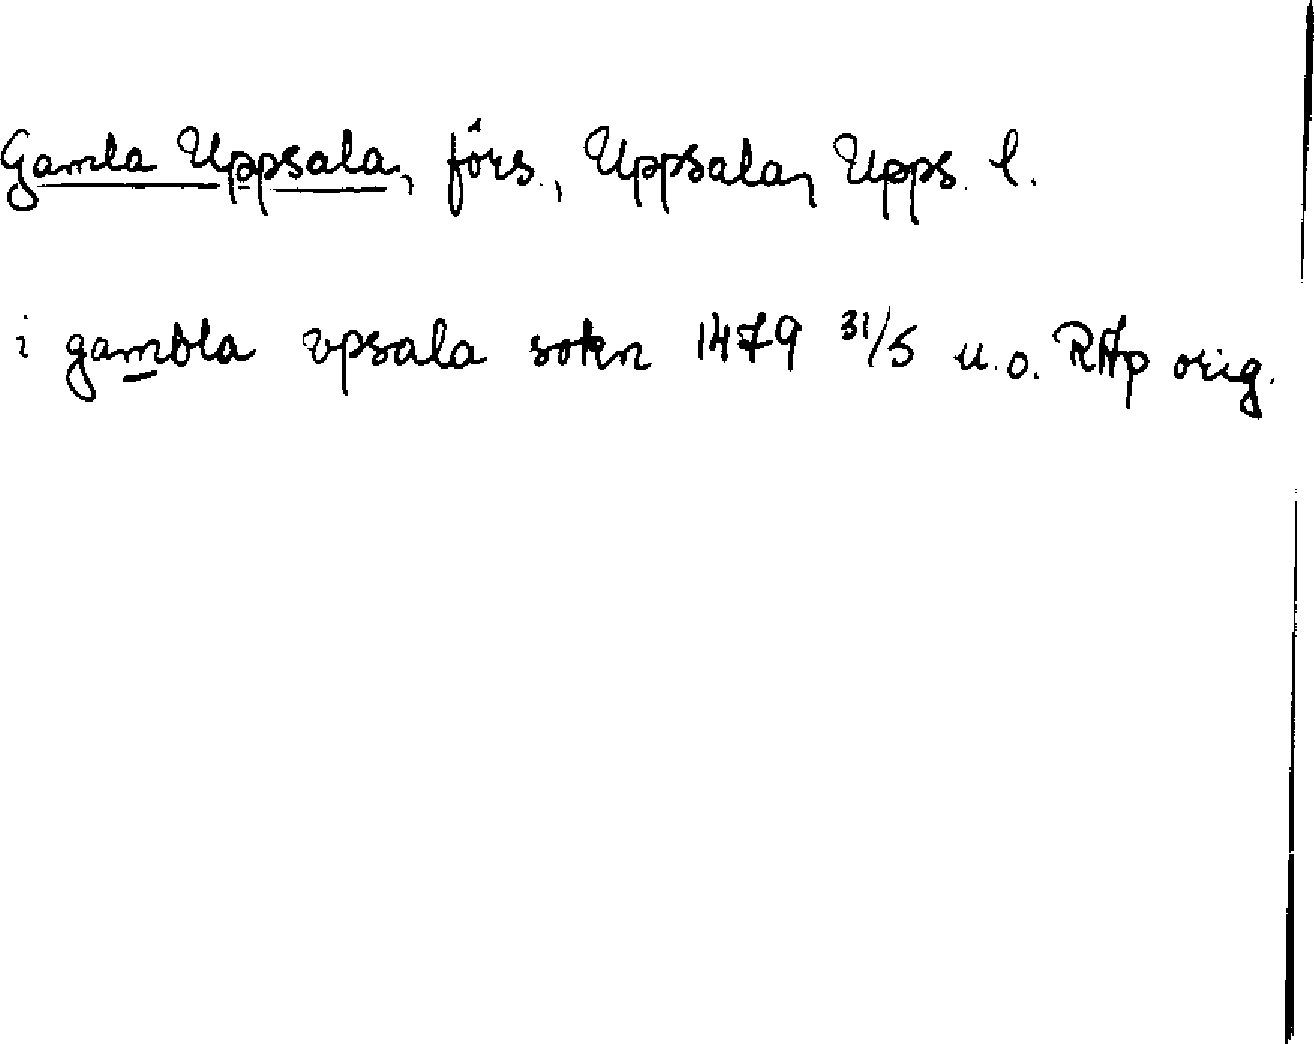 Gamla Uppsala, förs., Uppsala, Upps. l.
i gambla vpsala sokn 1479 31/5 u.o. RAp orig.